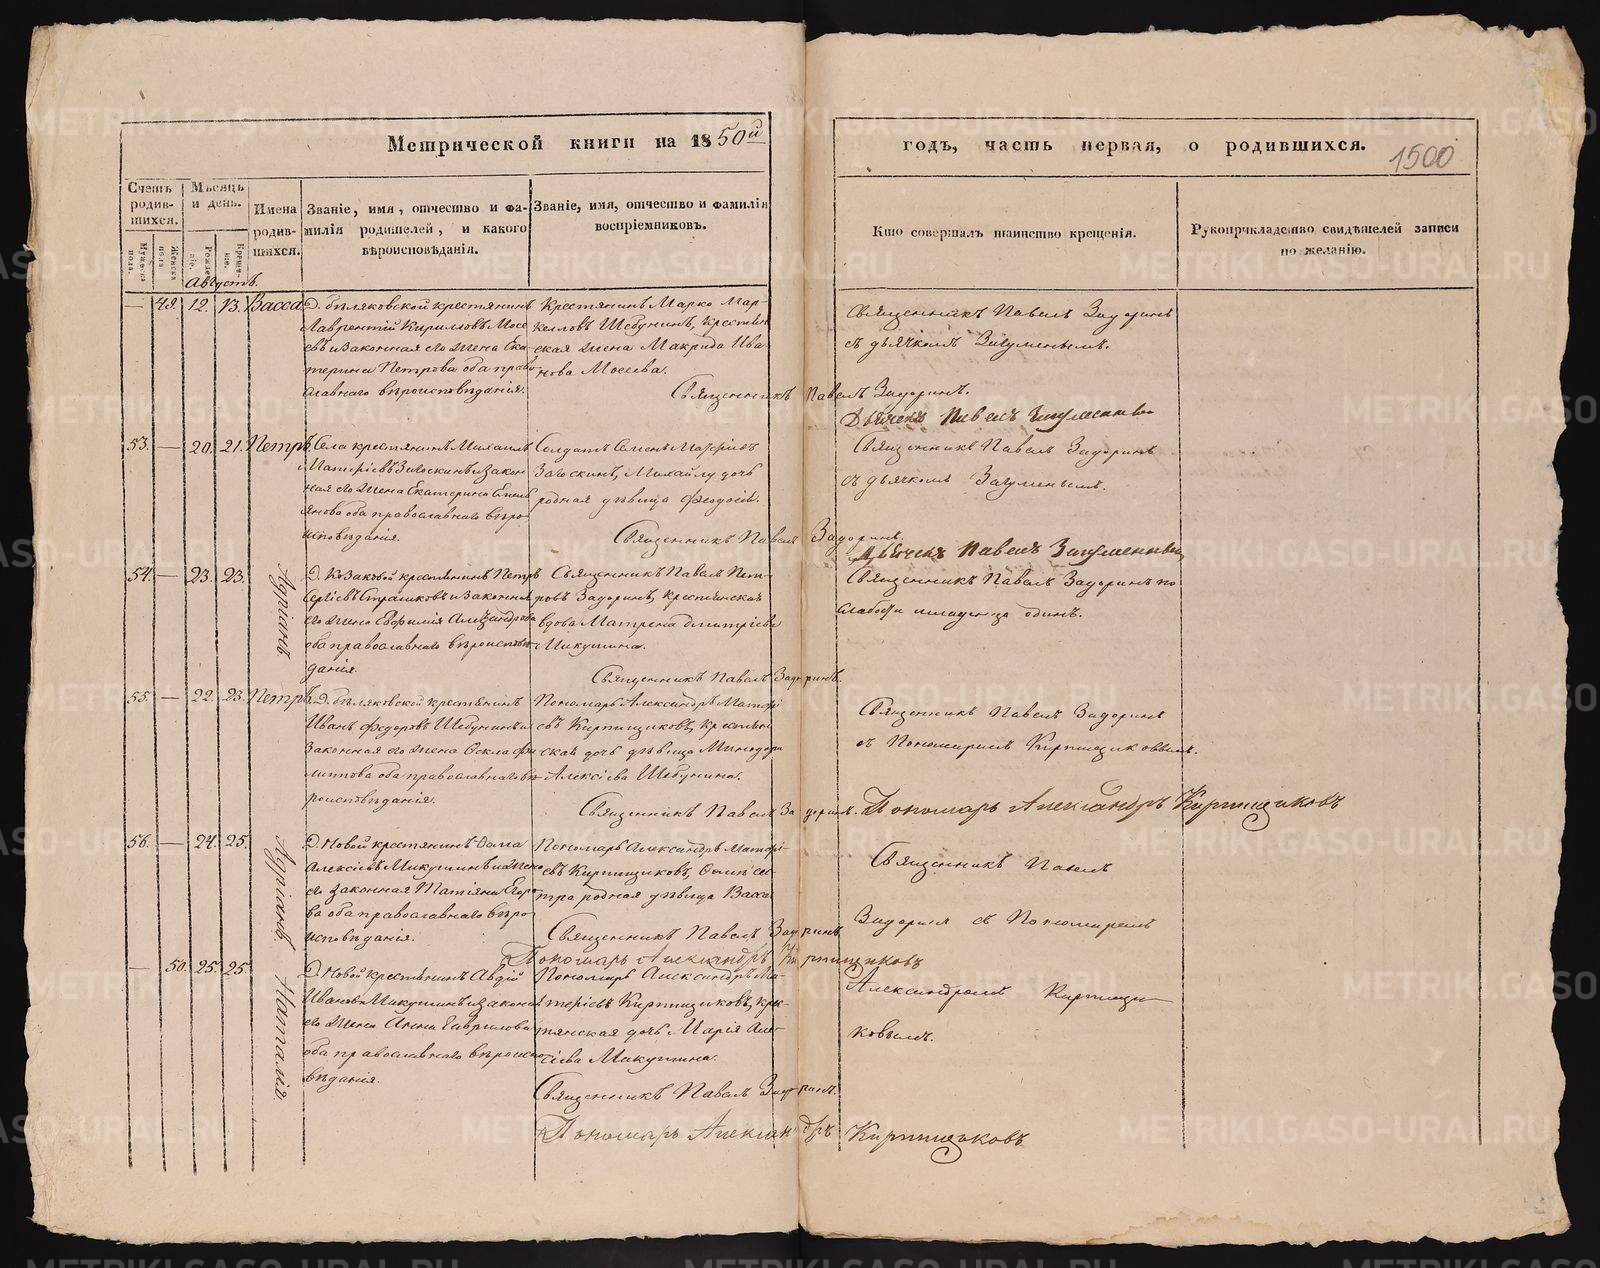 Метрической книги на 1850й
годъ, часть первая, о родившихся.
1500
Счетъ родив-шихся.
Мѣсяцъ и день.
Имена родив-шихся.
Званіе, имя, отчество и фа-милія родителей, и какого вѣроисповѣданія.
Званіе, имя, отчество и фамилія воспріемниковъ.
Кто совершалъ таинство крещенія.
Рукоприкладство свидѣтелей записи по желанію.
Мужеска пола.
Женска пола
Рожде-ніе.
Креще-ніе.
Августъ.
— 49. 12. 13. Васса
Д. Бѣляковской крестьянинъ
Лаврентій Кириловъ Мосе
евъ и законная его жена Ека-
терина Петрова оба право
славнаго вѣроисповѣданія.
Крестьянинъ Марко Мар-
келловъ Шебунинъ, крестьян
ская жена Макрида Ива
нова Мосеева.
Священникъ Павелъ Задоринъ.
Священникъ Павелъ Задоринъ
съ дьячкомъ Загуменнымъ.
Дьячекъ Павелъ Загуменный
53. — 20. 21. Петръ
Села крестьянинъ Михаилъ
Матфіевъ Загоскинъ и закон
ная его жена Екатерина Емель
янова оба православнаго вѣро-
исповѣданія.
Солдатъ Семенъ Матфіевъ
Загоскинъ, Михайлу дочь
родная дѣвица Феодосія.
Священникъ Павелъ Задоринъ.
Священникъ Павелъ Задоринъ
съ дьячкомъ Загуменнымъ.
Дьячекъ Павелъ Загуменный
54. — 23. 23. Адріанъ.
Д. Казаковой крестьянинъ Петръ
Сергіевъ Страшковъ и законная
его жена Евфимія Александрова
оба православнаго вѣроисповѣ-
данія.
Священникъ Павелъ Пет-
ровъ Задоринъ, крестьянская
вдова Матрена Дмитріева
Микушина.
Священникъ Павелъ Задоринъ.
Священникъ Павелъ Задоринъ по
слабости младенца одинъ.
55. — 22. 23. Петръ
Д. Бѣляковской крестьянинъ
Иванъ Федоровъ Шебунинъ и
законная его жена Фекла Фи
липпова оба православнаго вѣ-
роисповѣданія.
Пономарь Александръ Матфі
евъ Кирпищиковъ, крестьян
ская дочь дѣвица Минодора
Алексіева Шебунина.
Священникъ Павелъ Задоринъ.
Священникъ Павелъ Задоринъ
съ Пономаремъ Кирпищиковымъ.
Пономарь Александръ Кирпищиковъ
56. — 24. 25. Адріанъ.
Д. Новой крестьянинъ Фома
Алексіевъ Микушинъ и жена
его законная Татіана Егоро
ва оба православнаго вѣро-
исповѣданія.
Пономарь Александръ Матфі-
евъ Кирпищиковъ, Фомы сес-
тра родная дѣвица Васса.
Священникъ Павелъ Задоринъ
Пономарь Александръ Кирпищиковъ
Священникъ Павелъ
Задоринъ съ Пономаремъ
Александромъ Кирпищи-
ковымъ.
— 50. 25. 25. Наталія.
Д. Новой крестьянинъ Авдій
Ивановъ Микушинъ и законная
его жена Анна Гаврилова
оба православнаго вѣроиспо
вѣданія.
Пономарь Александръ Ма-
тфіевъ Кирпищиковъ, крес-
тьянская дочь Марія Алек-
сіева Микушина.
Священникъ Павелъ Задоринъ.
Пономарь Александръ Кирпищиковъ